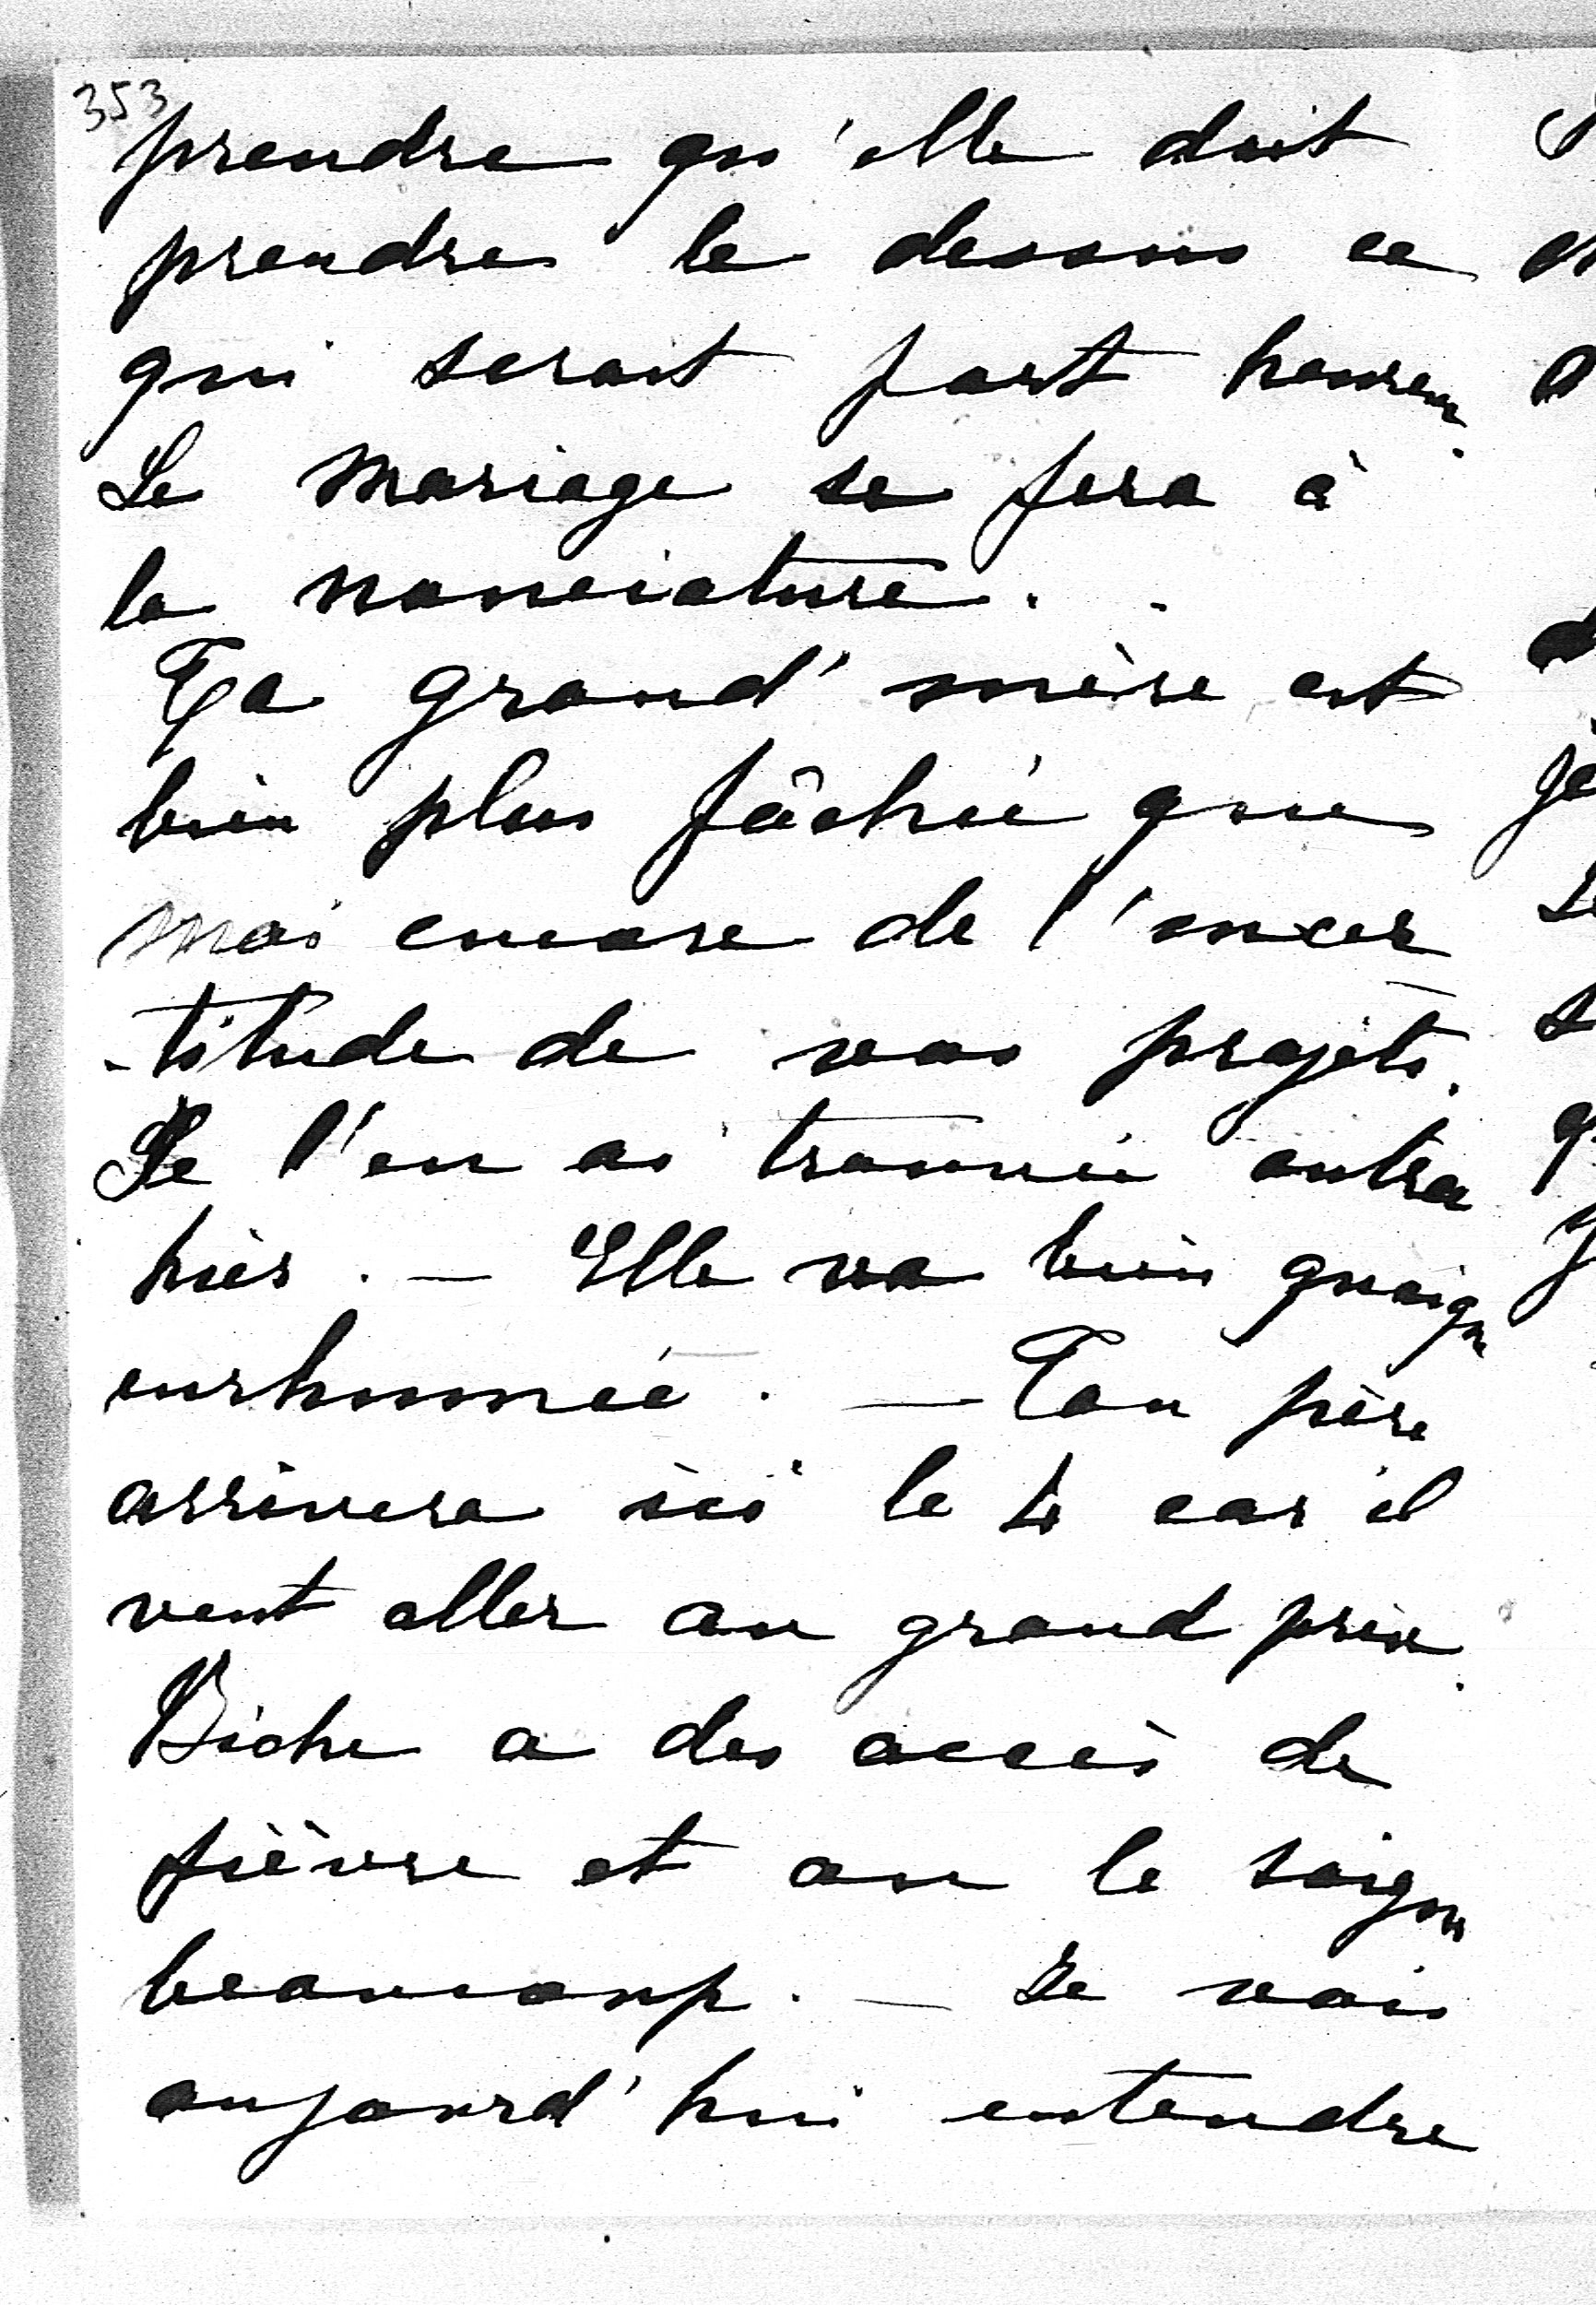 353
prendre qu'elle doit
prendre le dessus ce
qui serait fort heureux.
Le mariage se fera à
la nonciature.
Ta grand'mère est
bien plus fâchée que
moi encore de l'incer
-titude de vos projets.
Je l'en ai trouvée outrée
hier. — Elle va bien quoiqu
enrhumée. — Ton père
arrivera ici le 4 car il
veut aller au grand prix.
Biche a des accès de
fièvre et on le soigne
beaucoup. — Je vais
aujourd'hui entendre